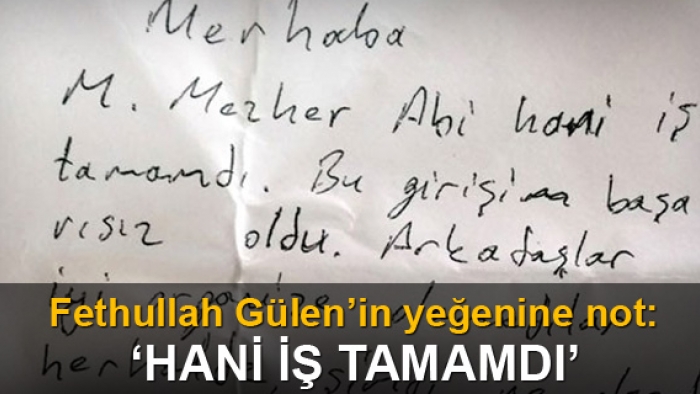 Merhaba
M. Mezher Abi hani iş
tamamdı. Bu girişim başa
rısız oldu. Arkadaşlar
iyi organize
Fethullah Gülen’in yeğenine not:
‘HANİ İŞ TAMAMDI’